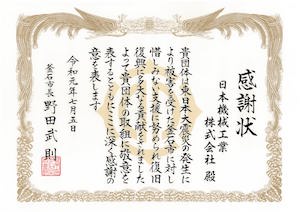 感謝状
日本機械工業
株式会社 殿
貴団体は東日本大震災の発生に
より被害を受けた釜石市に対し
惜しみない支援に努められ復旧
復興に多大な貢献をされました
よって貴団体の取組に敬意を
表するとともにここに深く感謝の
意を表します
令和元年七月五日
釜石市長 野田武則